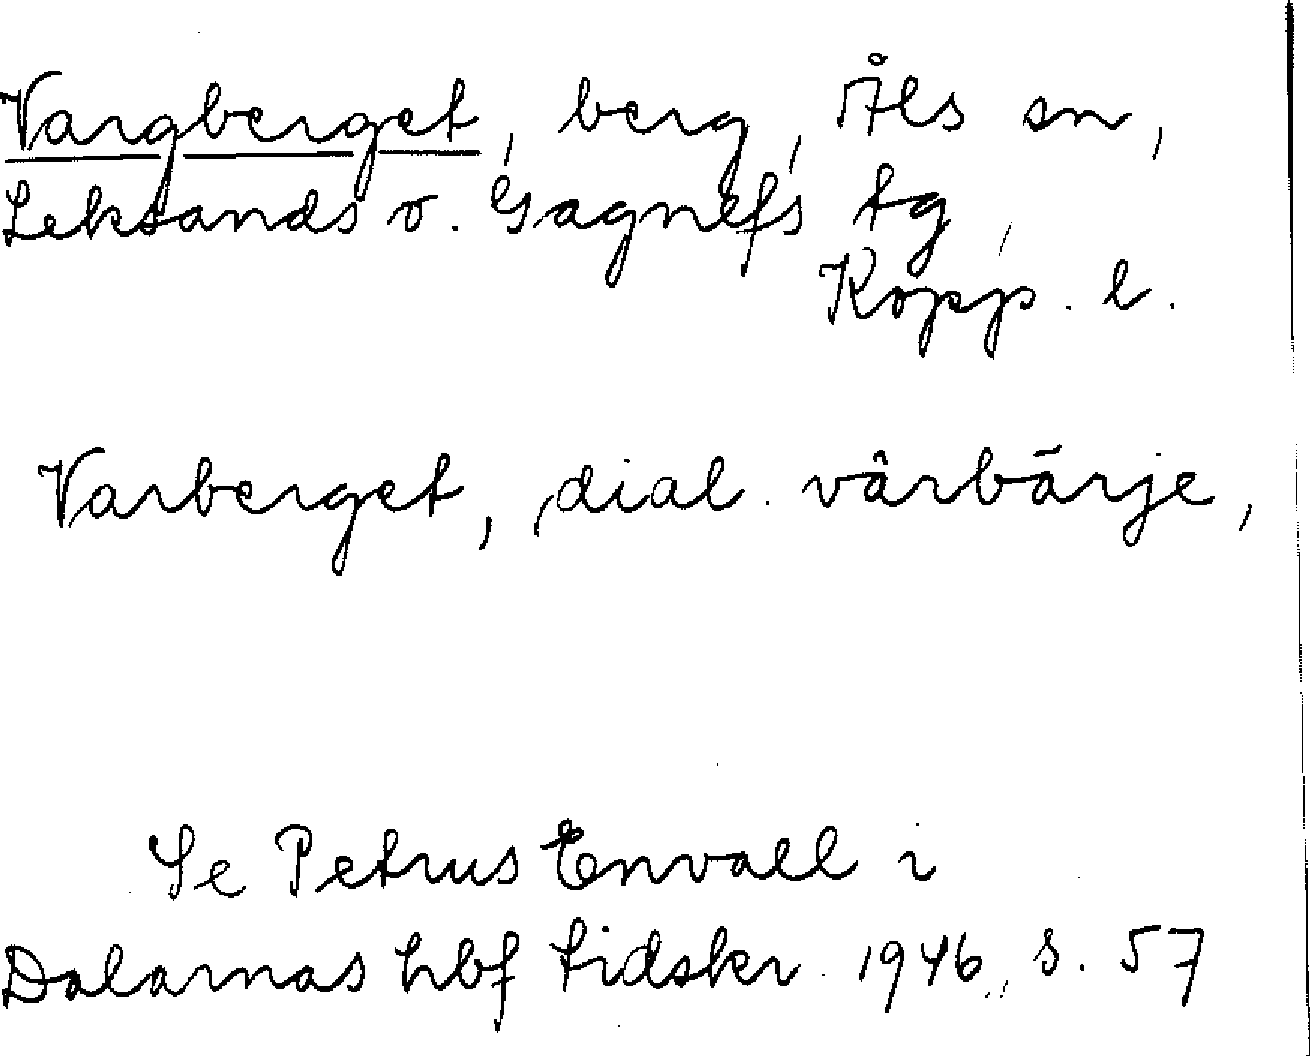 Vargberget, berg, Åls sn,
Leksands o. Gagnefs tg,
Kopp. l.
Varberget, dial. vârbārje,
Se Petrus Envall i
Dalarnas hbf tidskr. 1946, s. 57